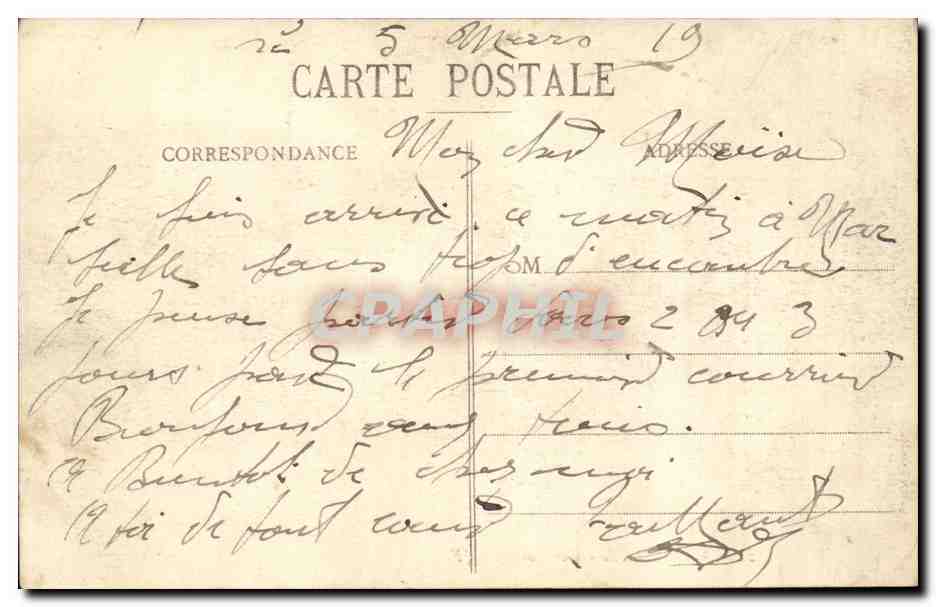 5 Mars 19
CARTE POSTALE
CORRESPONDANCE
ADRESSE
Mon cher Moïse
Je suis arrivé ce matin à Mar
seille sans trop d'encombres
M
Je pense partir dans 2 ou 3
jours par le premier courrier
Bonjour aux tiens.
a Bientot de chez moi
A toi de tout coeur
CARTAPHIL